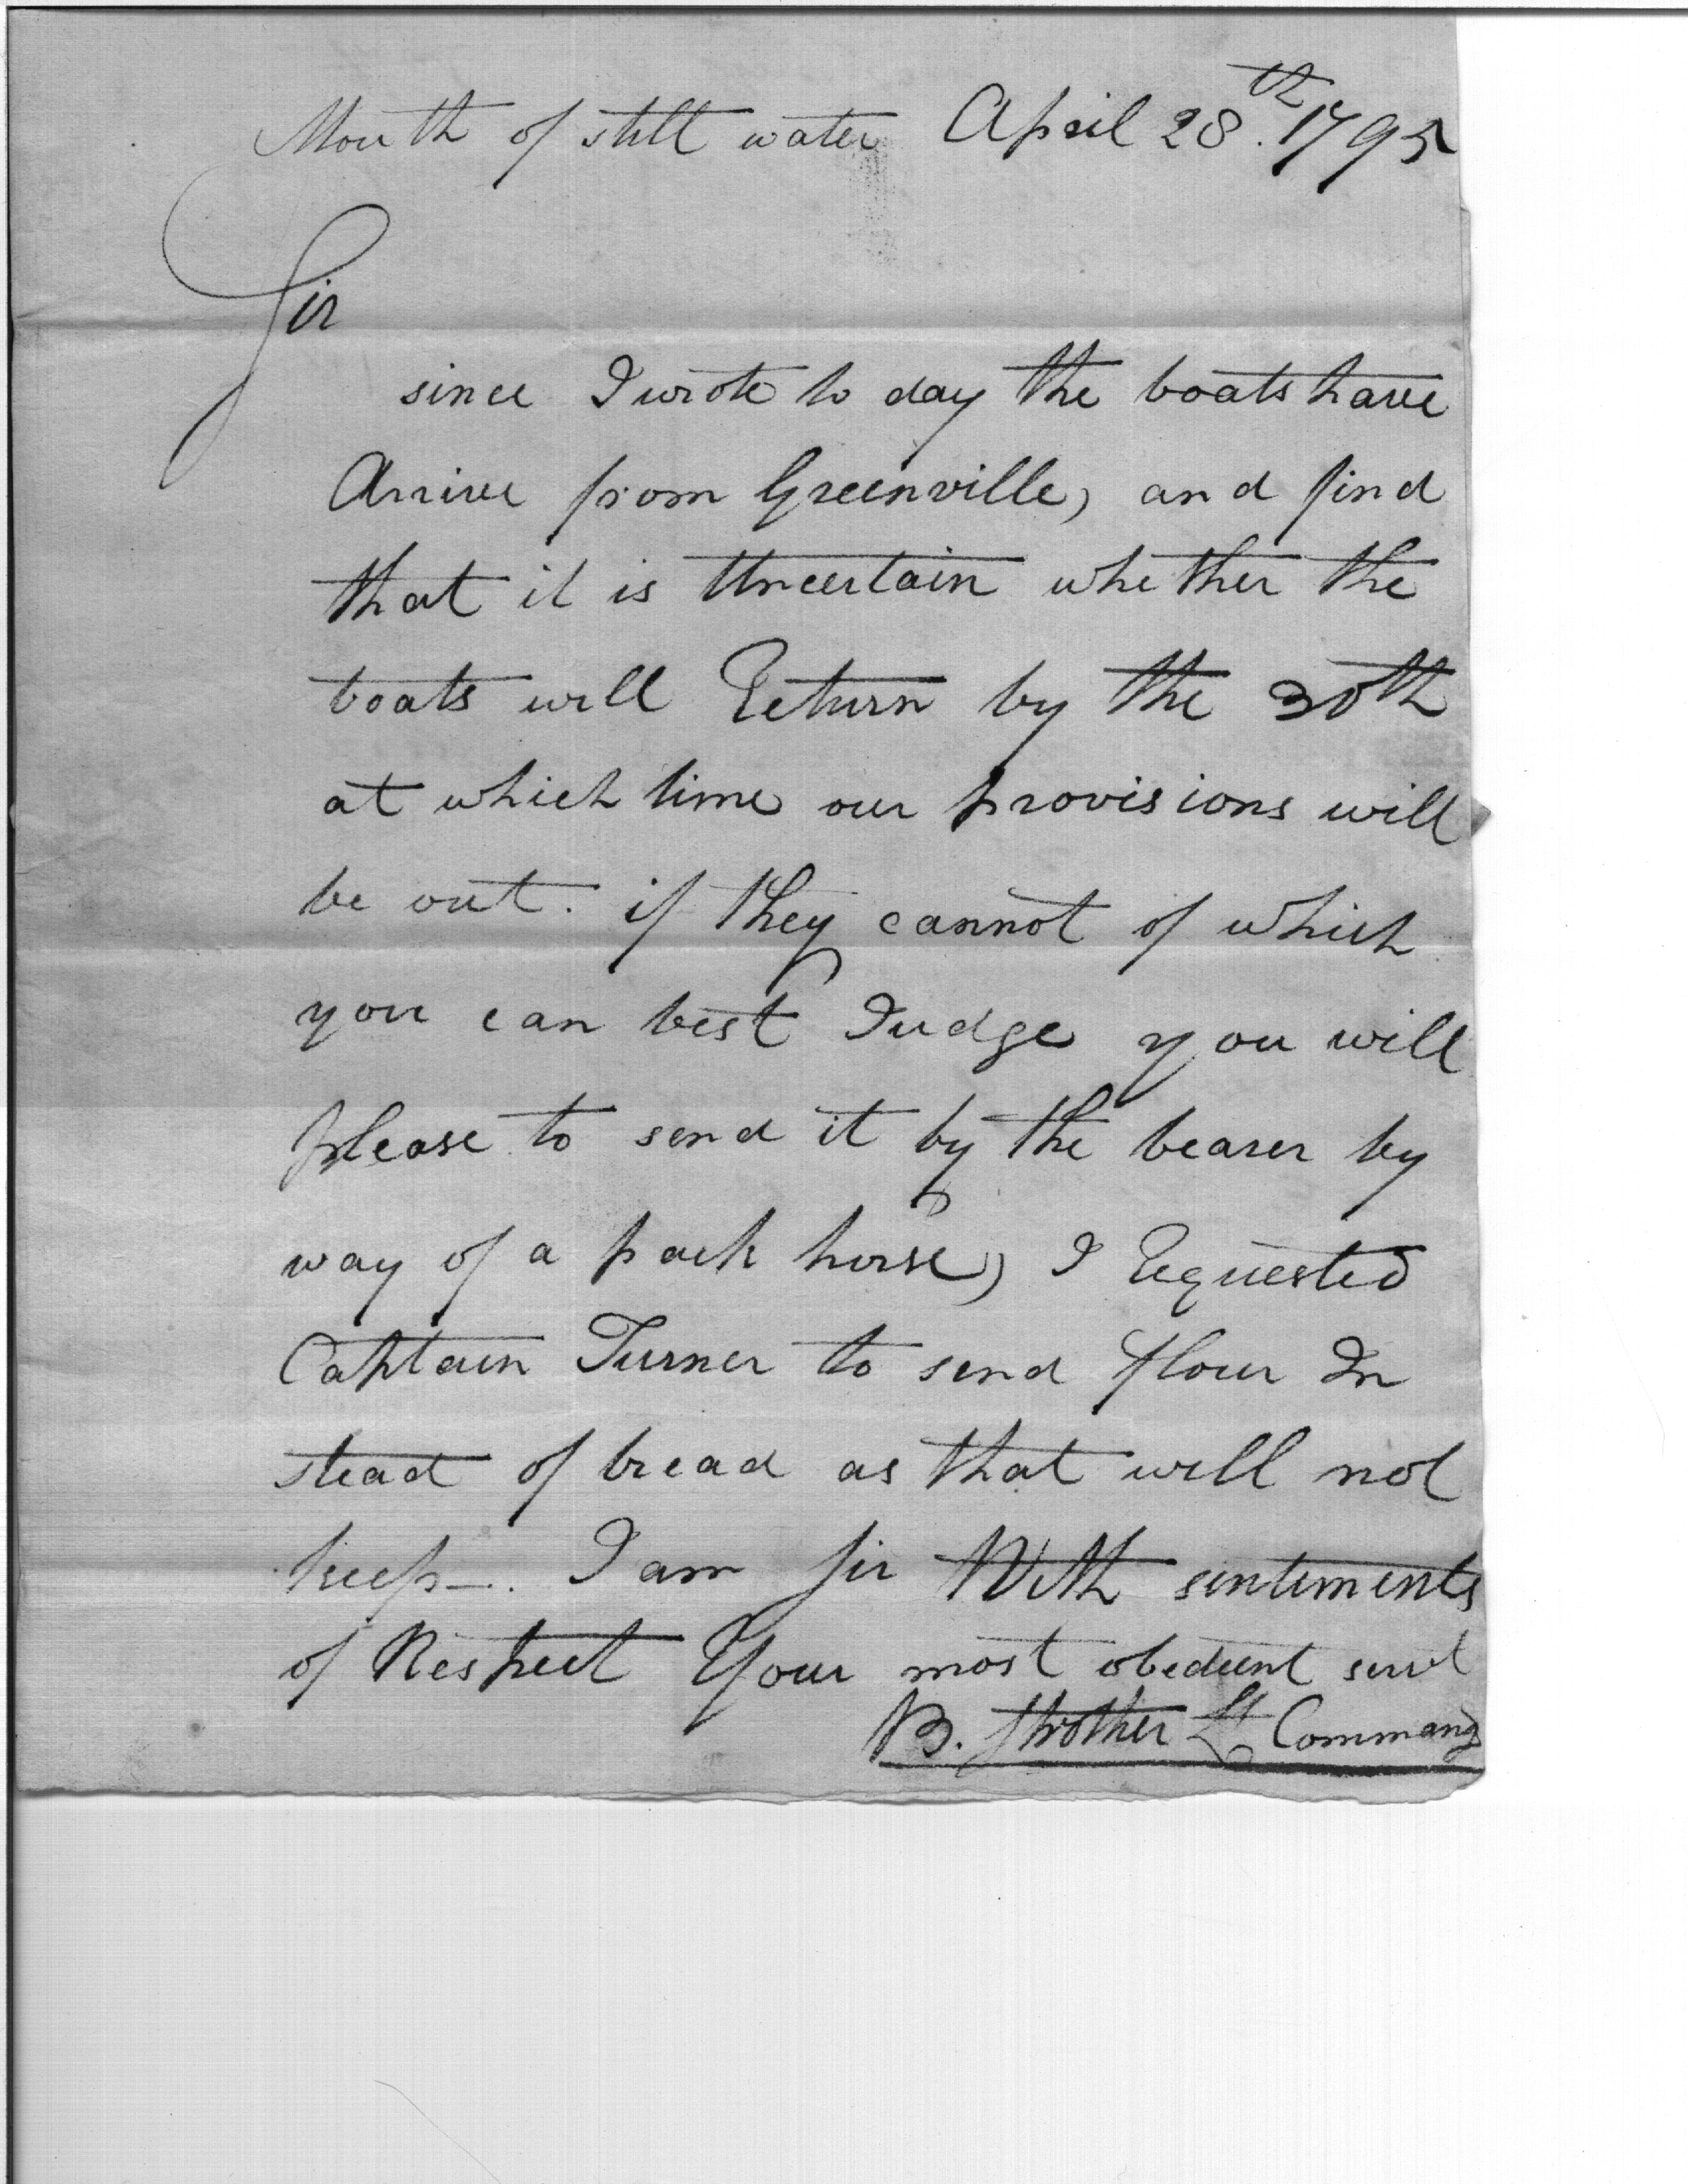 Mouth of still water April 28th. 1795
Sir
since I wrote to day the boats have
Arrive from Greenville, and find
that it is Uncertain whether the
boats will Return by the 30th
at which time our provisions will
be out. if they cannot of which
you can best Judge you will
please to send it by the bearer by
way of a pack horse, I Requested
Captain Turner to send flour In
stead of bread as that will not
keep—. I am Sir With sentiments
of Respect Your most obedient servt
B. Strother Lt Command